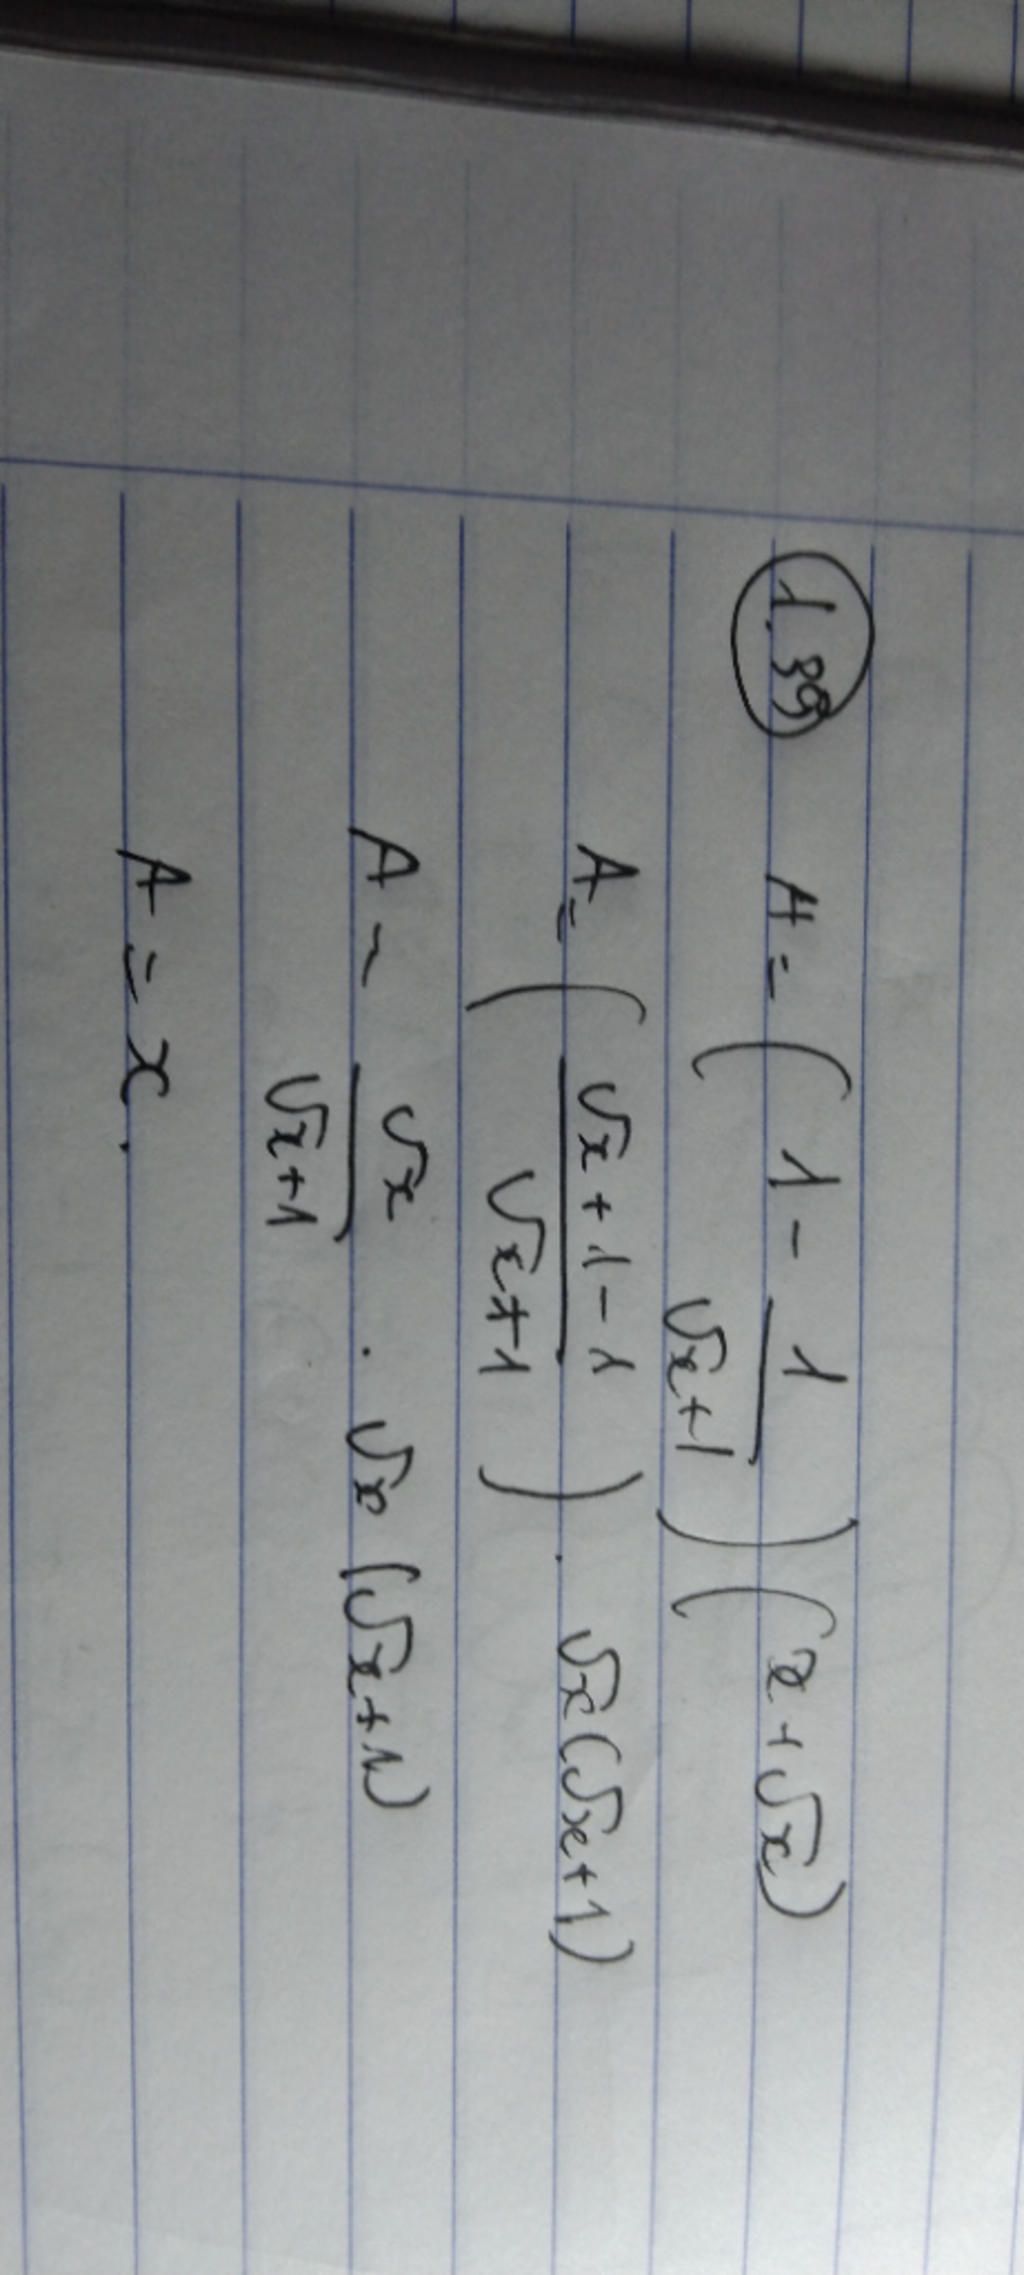 1.39 A = ( 1 - 1/(√x+1) ) ( x + √x )
A = ( (√x + 1 - 1)/(√x+1) ) . √x (√x+1)
A = √x/(√x+1) . √x (√x+1)
A = x.